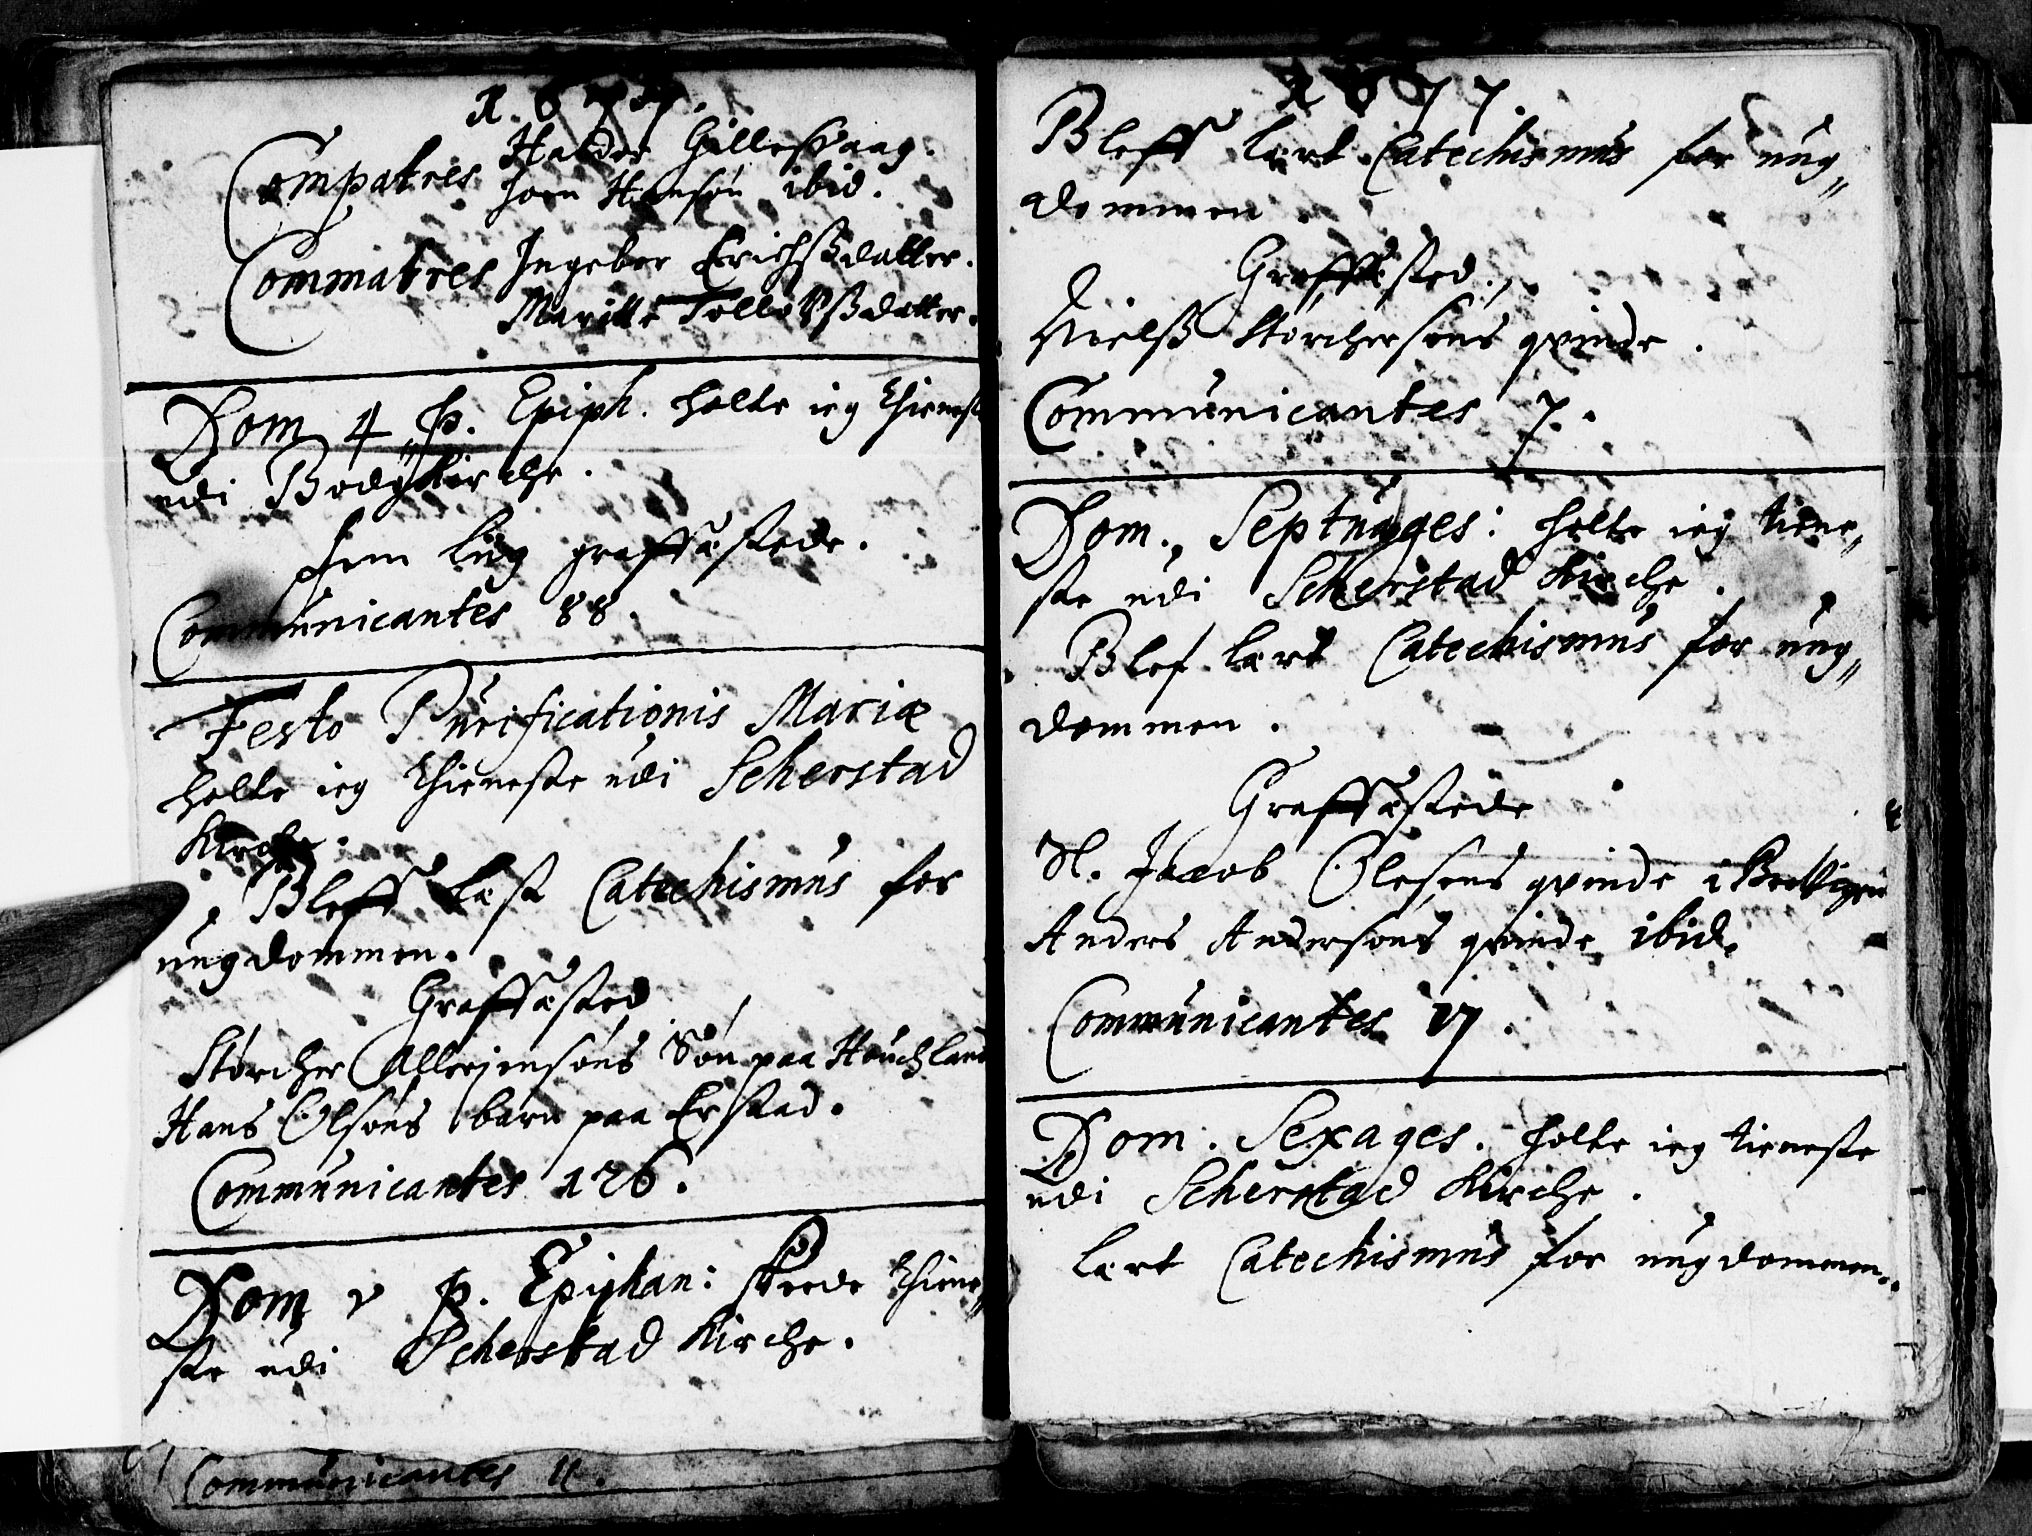 1677.
Compatres Halder Gillesvaag.
Joen Hansøn ibid.
Commatres Ingebor Erichsdatter.
Maritte Tollofsdatter.
Dom 4 p. Epiph. holte ieg thienest
udi Bodøkirche.
fem liig graffæstede.
Communicantes 88.
Festo Purificationis Mariæ
holte ieg thieneste udi Scherstad
Kirche.
Bleff læst Catechismus for
ungdommen.
Graffæsted
Storcher Allerjensøns Søn paa Houchland
Hans Olsøns barn paa Erstad.
Communicantes 126.
Dom v p. Epiphan: skede thiene„
ste udi Scherstad Kirche.
Communicantes 11.
1677.
Bleff lært Catechismus for ung„
dommen.
Graffæsted.
Nielß Storchersøns qvinde.
Communicantes 7.
Dom. Septuages: holte ieg tiene„
ste udi Scherstad Kirche.
Blef lært Catechismus for ung„
dommen.
Graffæstede
Sl. Jacob Olesøns qvinde i
Anders Andersøns qvinde ibid.
Communicantes 17.
Dom. Sexages. holte ieg tieneste
udi Scherstad Kirche.
lært Catechismus for ungdommen.